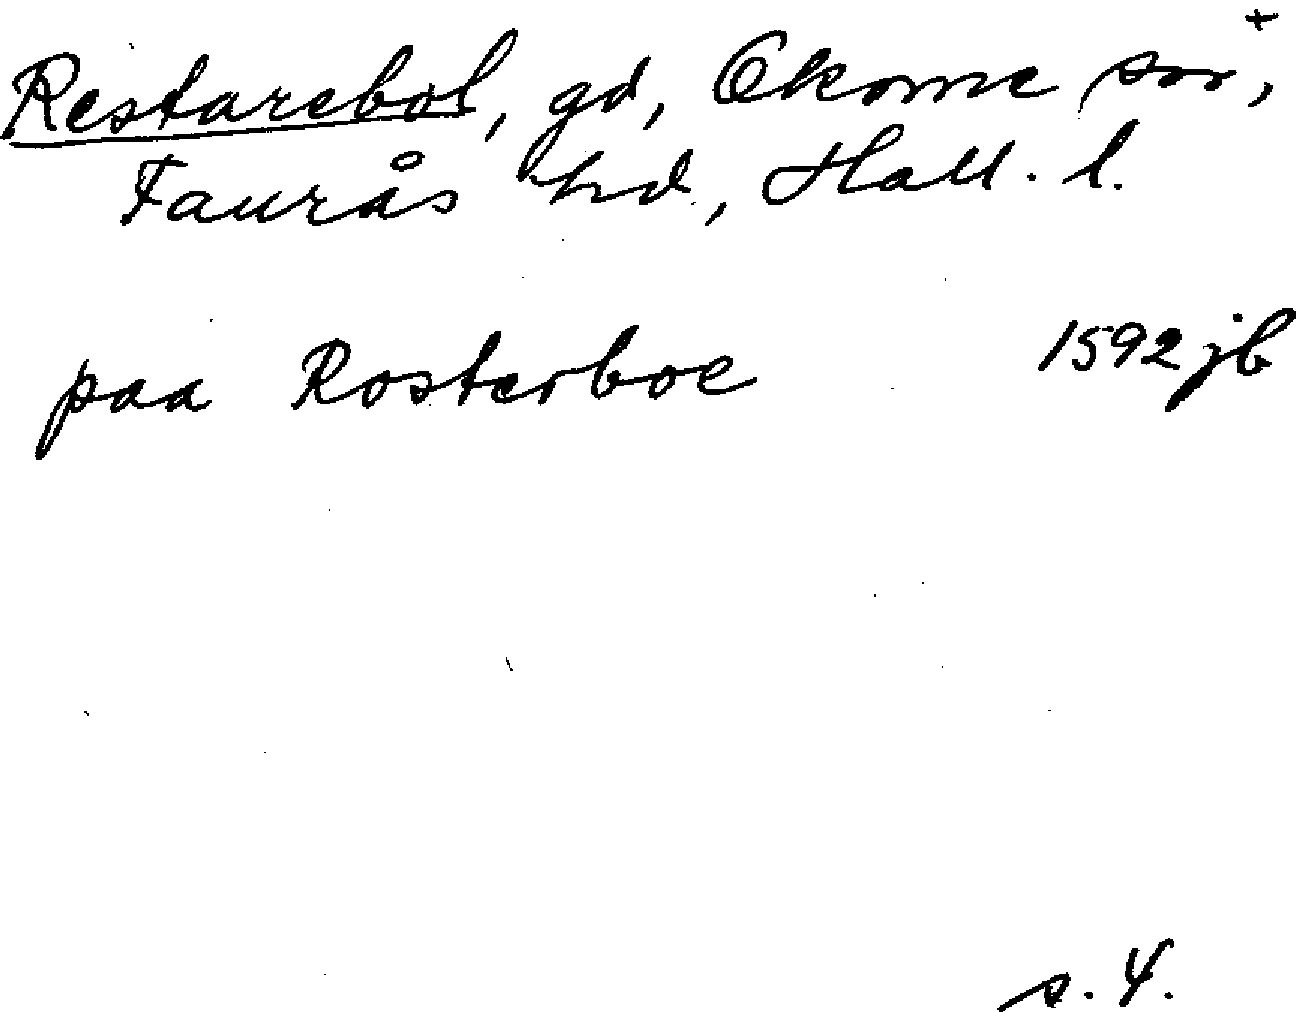 +
Restarebol, gd, Okome sn,
Faurås hd., Hall. l.
paa Rosterboe 1592 jb
s. 4.